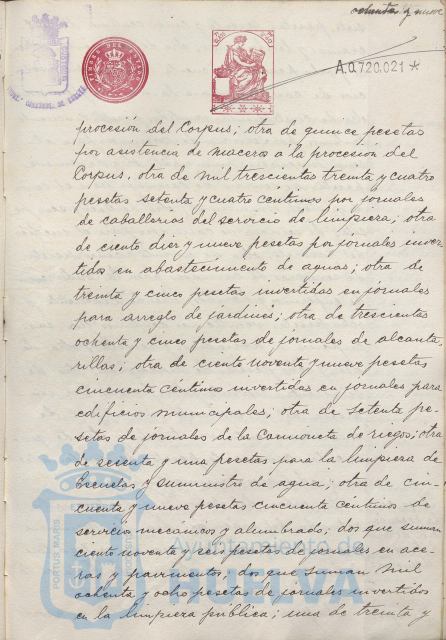 ochenta y nueve
A.0,720.021 *
procesión del Corpus; otra de quince pesetas
por asistencia de maceros á la procesión del
Corpus, otra de mil trescientas treinta y cuatro
pesetas setenta y cuatro céntimos por jornales
de caballerías del servicio de limpieza; otra
de ciento diez y nueve pesetas por jornales inver-
tidos en abastecimiento de aguas; otra de
treinta y cinco pesetas invertidas en jornales
para arreglo de jardines; otra de trescientas
ochenta y cinco pesetas de jornales de alcanta-
rillas; otra de ciento noventa y nueve pesetas
cincuenta céntimos invertidas en jornales para
edificios municipales; otra de setenta pe-
setas de jornales de la camioneta de riegos; otra
de sesenta y una pesetas para la limpieza de
Escuelas y suministro de agua; otra de cin-
cuenta y nueve pesetas cincuenta céntimos de
servicios mecánicos y alumbrado; dos que suman
ciento noventa y seis pesetas de jornales en ace-
ras y pavimentos; dos que suman mil
ochenta y ocho pesetas de jornales invertidos
en la limpieza pública; una de treinta y
PORTUS MARIS
Ayuntamiento de
HUELVA